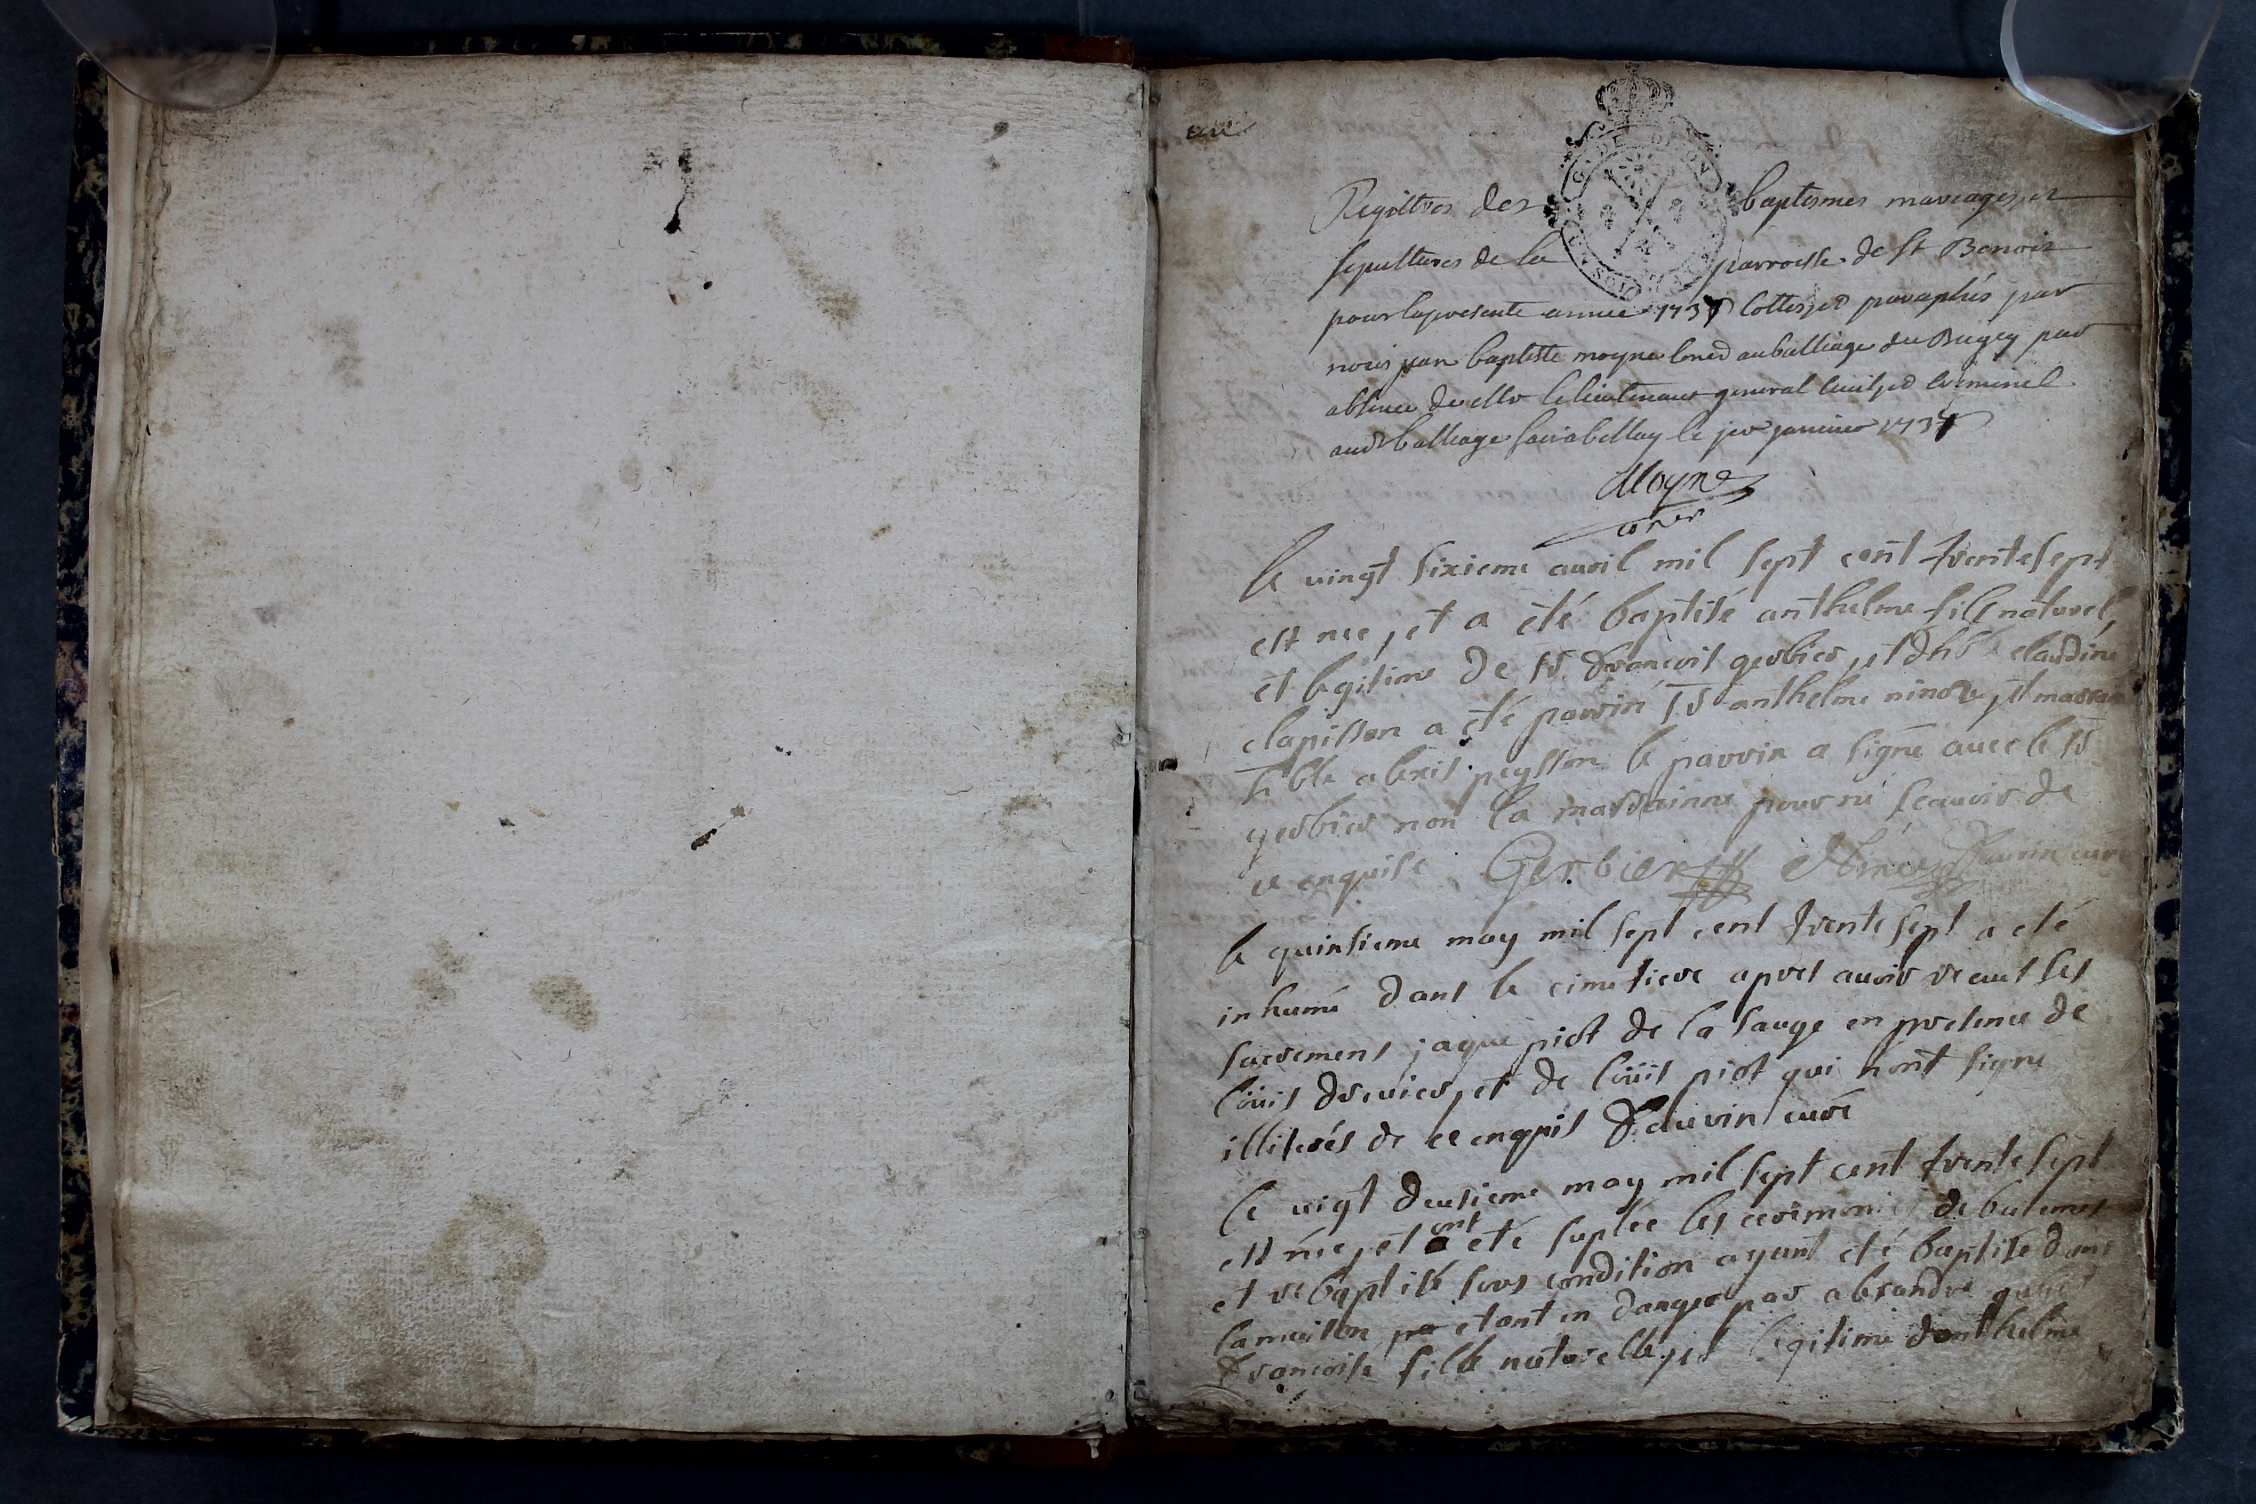 Registres des baptesmes mariages et
sepultures de la parroisse de st Benoit
pour la presente année 1737 cottes et paraphés par
nous jean baptiste moyne au balliage du Bugey par
absence de le lieutenant general civil et criminel
audt balliage fait a bellay le jer janvier 1737
Moyne
le vingt sixieme avril mil sept cent trente sept
est née, et a été baptisé anthelme fils naturel,
et legitime de sr françois gerbier, et claudine
clapisson a été parrin sr anthelme et marrain
alexis peysson le parrin a signe avec le sr
gerbier non la marrainne pour ne scavoir de
ce enquise Gerbier curé
le quinsieme may mil sept cent trente sept a eté
inhumé dans le cimetiere apres avoir receut ses
sacremens jaque piot de la sauge en presence de
louis drevier, et de loüis piot qui nont signe
illiterés de ce enquis favrin curé
le vigt deusieme may mil sept cent trente sept
est née, et ont eté suplée les ceremonies de batemes
et rebaptisé sous condition ayant eté baptisé dans
la maison etant en danger par
françoise fille naturelle, et legitime danthelme